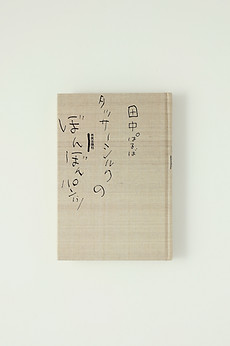 田中ぱるば
タッサーシルクの
ぼんぼんパンツ